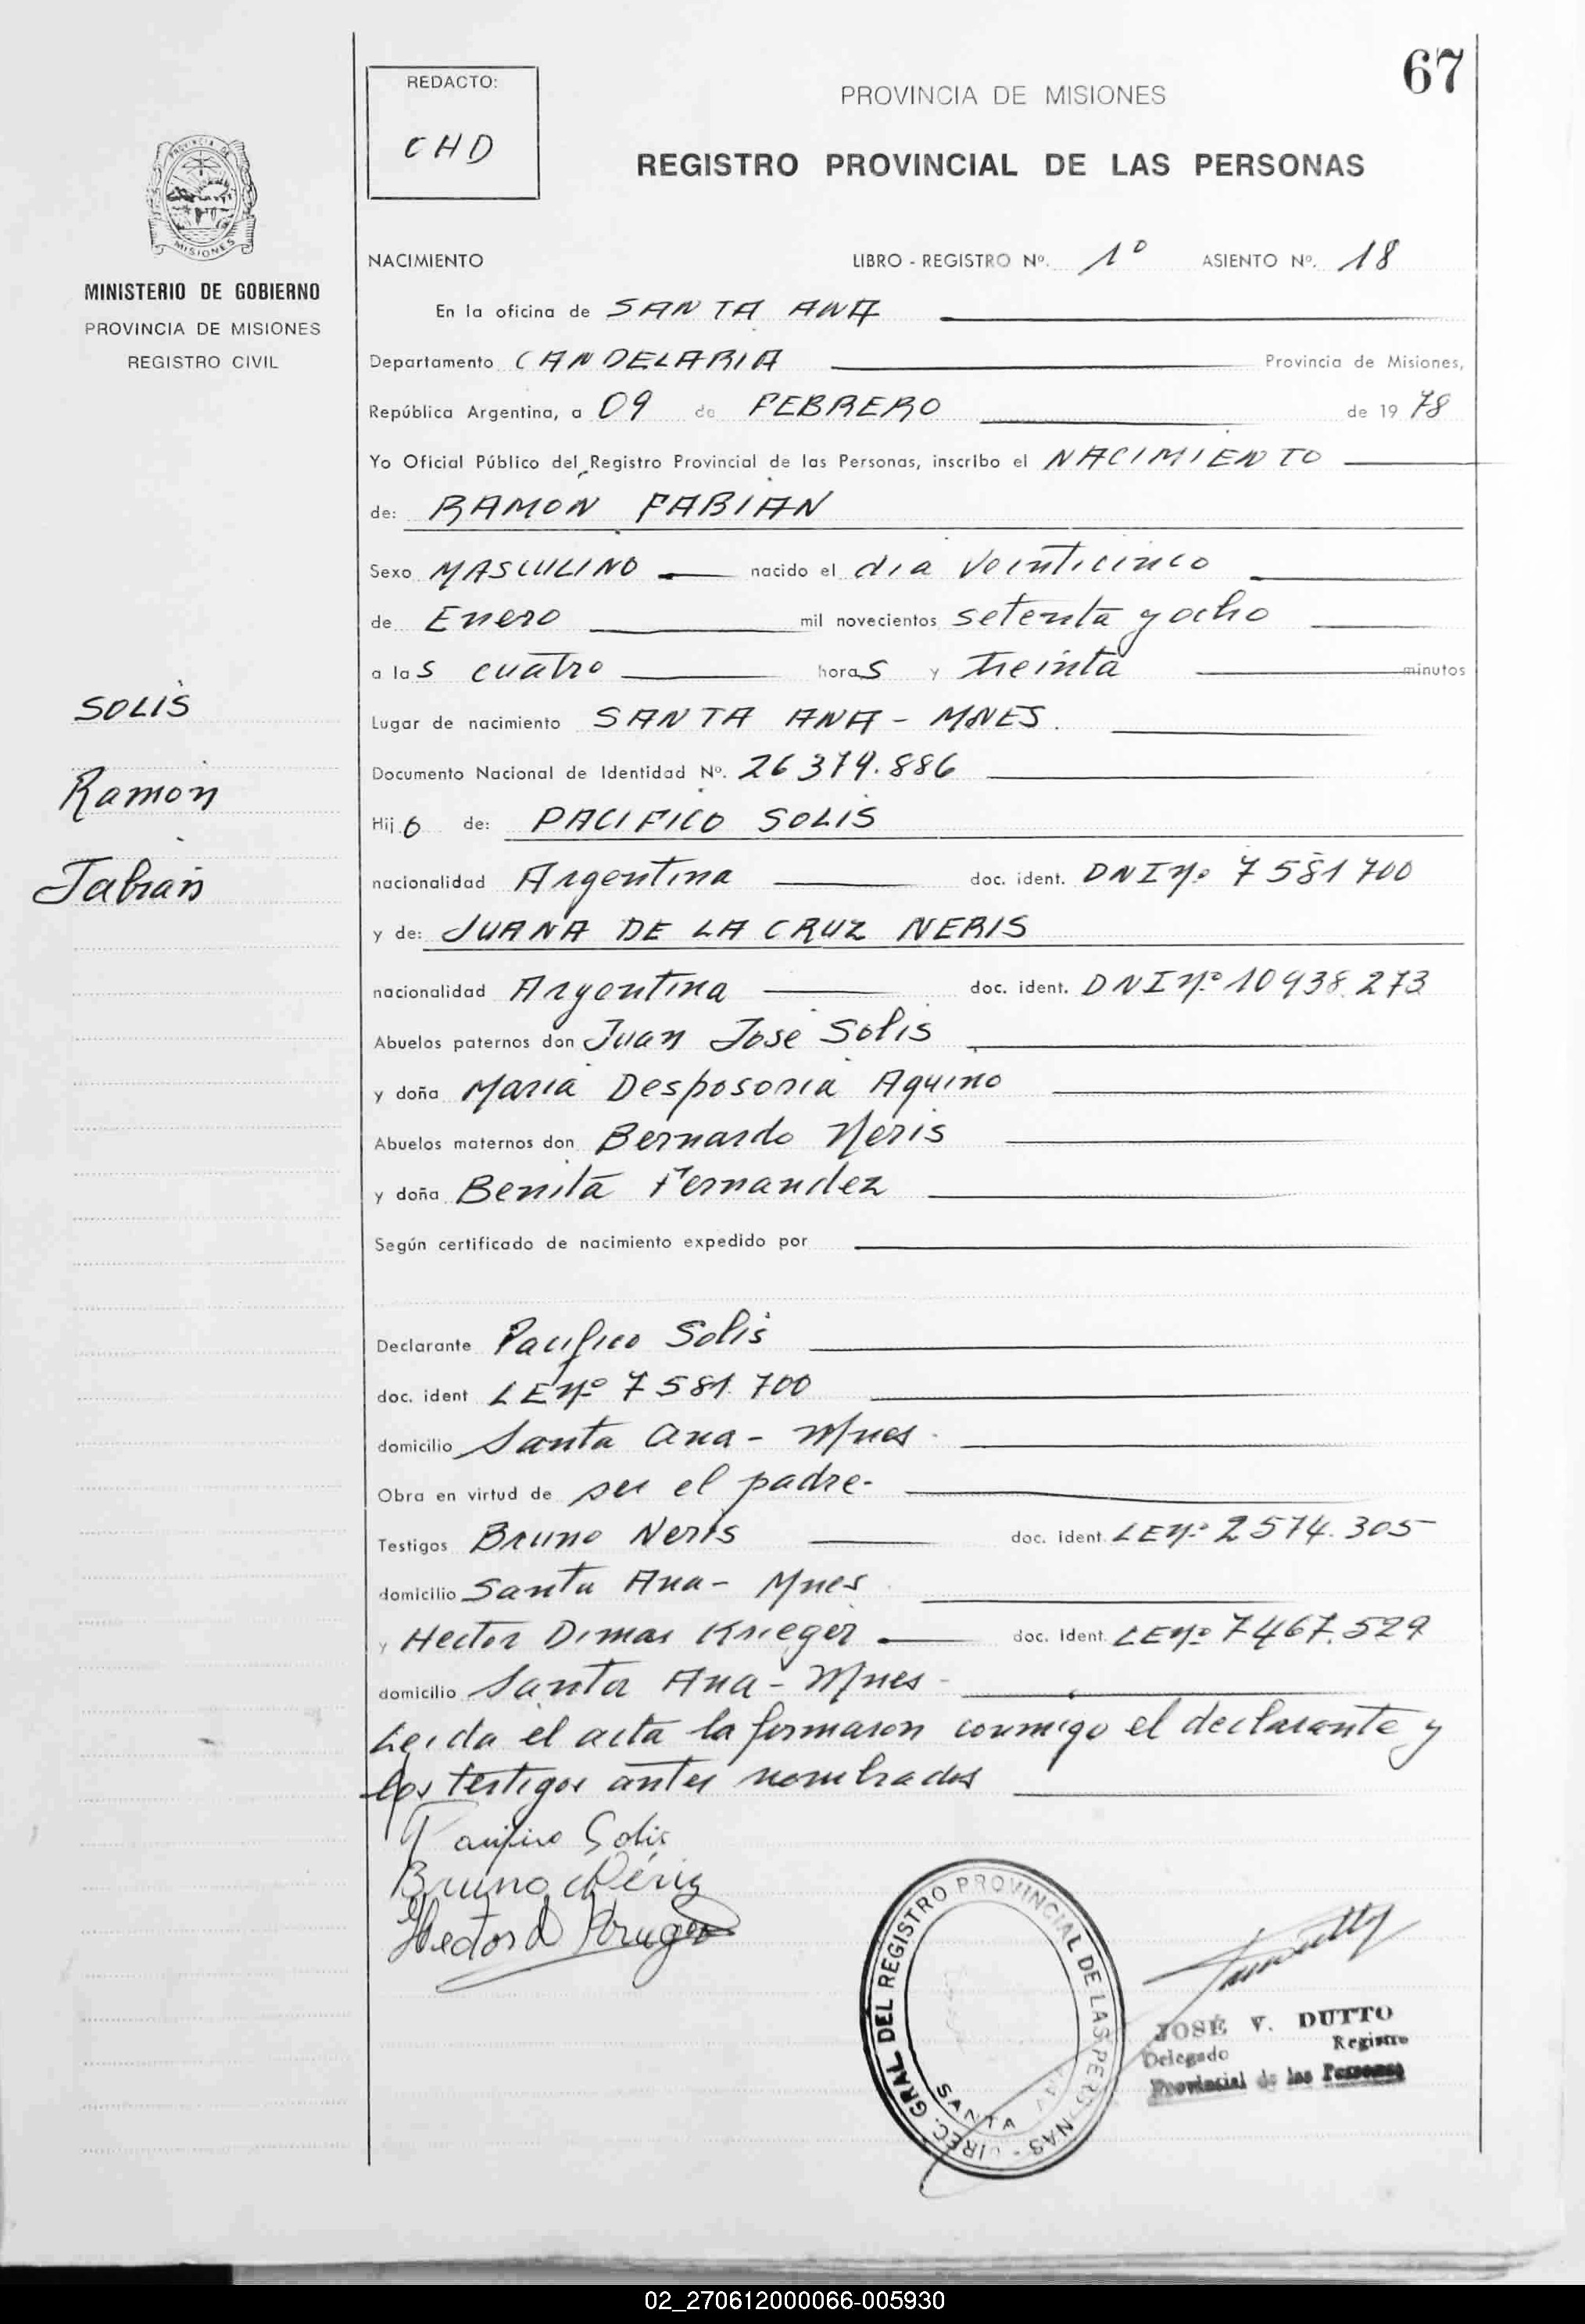 67
REDACTO:
CHD
PROVINCIA DE MISIONES
REGISTRO PROVINCIAL DE LAS PERSONAS
PROVINCIA DE
MISIONES
MINISTERIO DE GOBIERNO
PROVINCIA DE MISIONES
REGISTRO CIVIL
NACIMIENTO LIBRO - REGISTRO Nº. 1º ASIENTO Nº. 18
En la oficina de SANTA ANA
Departamento CANDELARIA Provincia de Misiones,
República Argentina, a 09 de FEBRERO de 19 78
Yo Oficial Público del Registro Provincial de las Personas, inscribo el NACIMIENTO
de: RAMÓN FABIAN
Sexo MASCULINO nacido el dia veinticinco
de Enero mil novecientos setenta y ocho
a las cuatro horas y treinta minutos
Lugar de nacimiento SANTA ANA - MNES.
Documento Nacional de Identidad Nº. 26 379.886
Hijo de: PACIFICO SOLIS
nacionalidad Argentina doc. ident. DNI Nº 7 581 700
y de: JUANA DE LA CRUZ NERIS
nacionalidad Argentina doc. ident. DNI Nº 10 938.273
Abuelos paternos don Juan José Solis
y doña María Desposoria Aquino
Abuelos maternos don Bernardo Neris
y doña Benita Fernandez
Según certificado de nacimiento expedido por
Declarante Pacifico Solis
doc. ident LE Nº 7 581. 700
domicilio Santa Ana - Mnes.
Obra en virtud de ser el padre-
Testigos Bruno Neris doc. ident. LE Nº 2574.305
domicilio Santa Ana - Mnes
y Hector Dimas Krieger doc. Ident. LE Nº 7467.529
domicilio Santa Ana - Mnes -
Leida el acta la firmaron conmigo el declarante y
los testigos antes nombrados
SOLIS
Ramón
Fabian
Pacifico Solis
Bruno Neris
Hector D Kruger
DIREC. GRAL. DEL REGISTRO PROVINCIAL DE LAS PERSONAS -
SANTA ANA
JOSÉ V. DUTTO
Delegado Registro
Provincial de las Personas
02_270612000066-005930